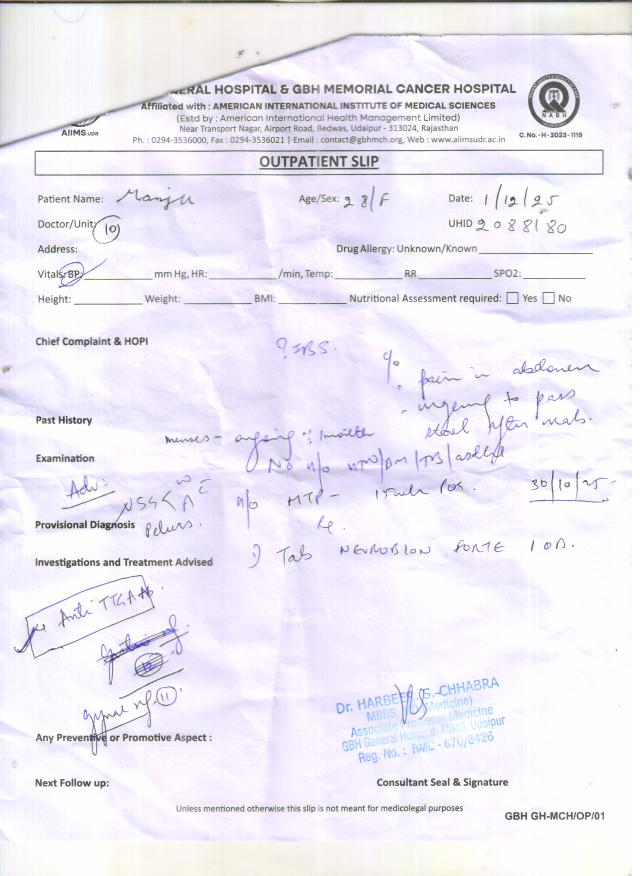 ERAL HOSPITAL & GBH MEMORIAL CANCER HOSPITAL
Affilated with : AMERICAN INTERNATIONAL INSTITUTE OF MEDICAL SCIENCES
(Estd by : American International Health Management Limited)
Near Transport Nagar, Airport Road, Bedwas, Udaipur - 313024, Rajasthan
Ph. : 0294-3536000, Fax : 0294-3536021 | Email : contact@gbhmch.org, Web : www.aiimsudr.ac.in
AIIMS.UDR
NABH
C. No. - H - 2023 - 1119
OUTPATIENT SLIP
Patient Name: Manju Age/Sex: 28/F Date: 1/12/25
Doctor/Unit: 10 UHID 2088180
Address: Drug Allergy: Unknown/Known
Vitals: BP: mm Hg, HR: /min, Temp: RR SPO2:
Height: Weight: BMI: Nutritional Assessment required: Yes No
Chief Complaint & HOPI
? IBS.
c/o
pain in abdomen
- urgency to pass
stool after meals.
Past History
menses - ongoing
Examination
No h/o HTN/DM/TB/
Adv:
USG
h/o MTP - 30/10/25
Provisional Diagnosis Pelvis.
Rx.
Investigations and Treatment Advised
1) Tab NEUROBION FORTE 1 OD.
Anti TTG Ab.
12
gynae ref. 11
Dr. HARBEER S. CHHABRA
MBBS, (Medicine)
Associate Professor Medicine
GBH General Hospital, AIIMS, Udaipur
Reg. No. : RMC - 670/8426
Any Preventive or Promotive Aspect :
Next Follow up: Consultant Seal & Signature
Unless mentioned otherwise this slip is not meant for medicolegal purposes
GBH GH-MCH/OP/01